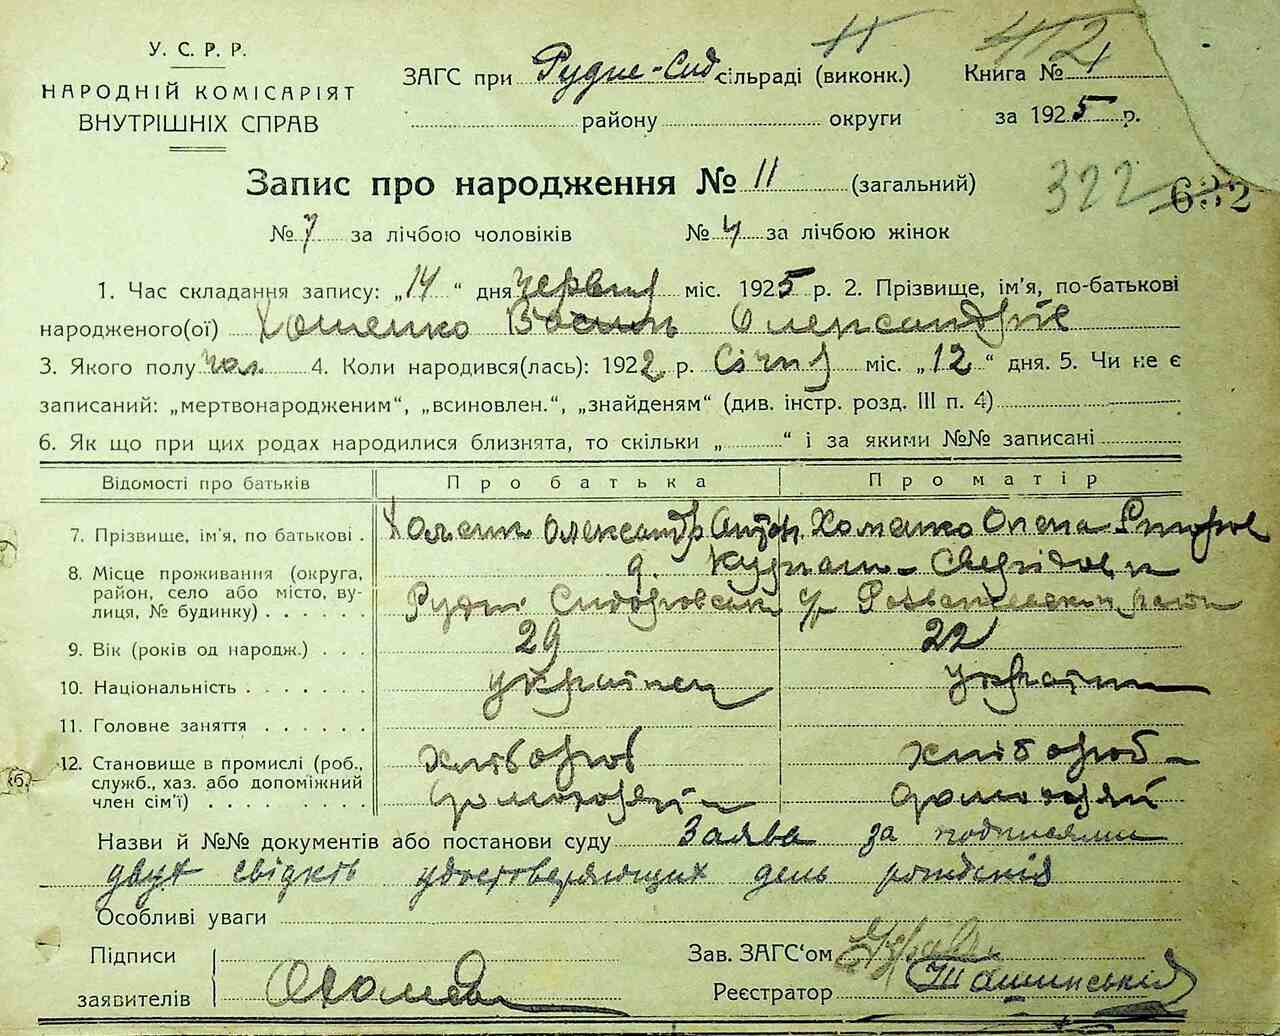 У. С. Р. Р.
НАРОДНІЙ КОМІСАРІЯТ
ВНУТРІШНІХ СПРАВ
ЗАГС при Рудне-Сид сільраді (виконк.)
району округи
11
412
Книга № 1
за 1925 р.
Запис про народження № 11 (загальний)
322 632
№ 7 за лічбою чоловіків № 4 за лічбою жінок
1. Час складання запису: „14“ дня червня міс. 1925 р. 2. Прізвище, ім'я, по-батькові
народженого(ої) Хоменко Василь Олександров
3. Якого полу чол. 4. Коли народився(лась): 1922 р. Січня міс. „12“ дня. 5. Чи не є
записаний: „мертвонародженим“, „всиновлен.“, „знайденям“ (див. інстр. розд. III п. 4)
6. Як що при цих родах народилися близнята, то скільки „ “ і за якими №№ записані
Відомості про батьків Про батька Про матір
7. Прізвище, ім'я, по батькові . Хоменко Олександр Антон. Хоменко Олена
8. Місце проживання (округа,
район, село або місто, ву-
лиця, № будинку) . . . . . . Рудні Сидоровськ
9. Вік (років од народж.) . . . 29 22
10. Національність . . . . . . . українец україн
11. Головне заняття . . . . . .
12. Становище в промислі (роб., хлібороб хлібороб-
служб., хаз. або допоміжний
член сім'ї) . . . . . . . . . домохозяй домохозяй
Назви й №№ документів або постанови суду Заява за подписями
двух свідків удостоверяющих день рождения
Особливі уваги
Підписи
заявителів
Зав. ЗАГС‘ом
Реєстратор
(б.